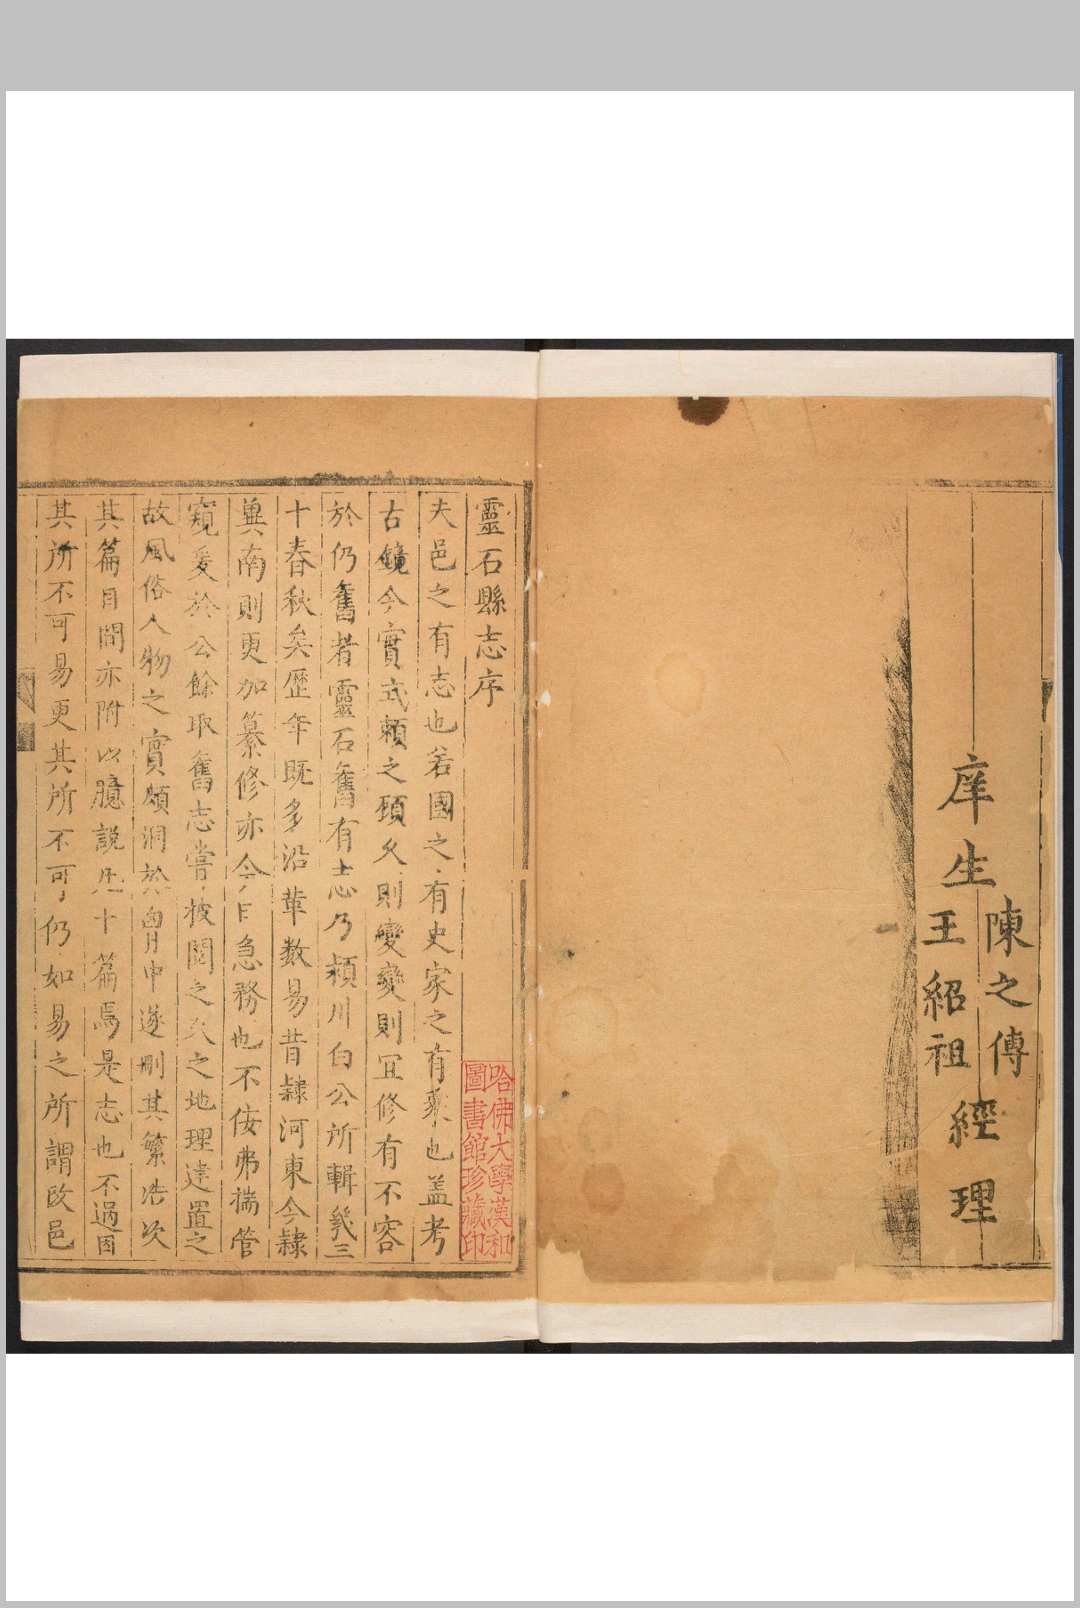 庠生
陳之傅
王紹祖
經理
靈石縣志序
夫邑之有志也若國之有史家之有乘也盖考
古鏡今實式頼之頋久則變變則宜修有不容
於仍舊者靈石舊有志乃潁川白公所輯幾三
十春秋矣歴年既多沿革数易昔隸河東今隸
兾南則更加纂修亦今日急務也不佞弗揣管
窺爰於公餘取舊志嘗披閱之久之地理建置之
故風俗人物之實頗洞於胷中遂刪其繁浩次
其篇目間亦附以臆說凡十篇焉是志也不過因
其所不可易更其所不可仍如易之所謂改邑
哈佛大學漢和
圖書館珍藏印